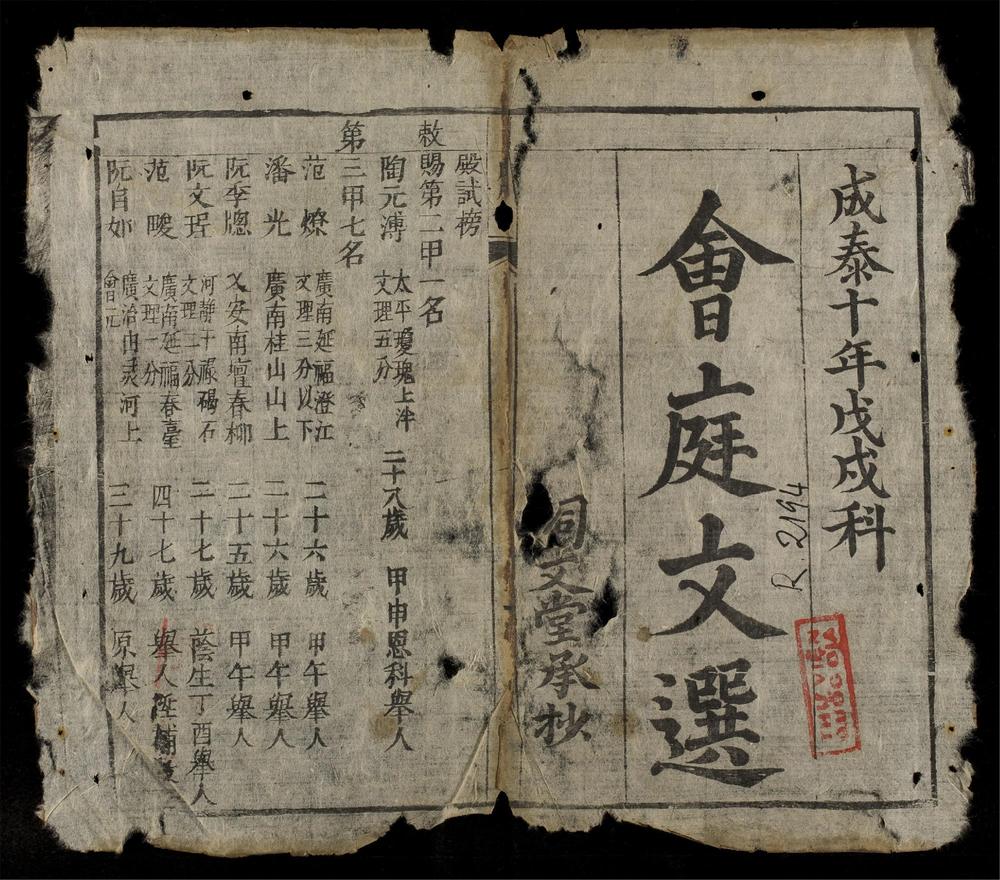 成泰十年戊戌科
會庭文選
R. 2194
同文堂承抄
殿試榜
敕賜第二甲一名
陶元溥 太平瓊瑰上泮 文理五分 二十八歲 甲申恩科舉人
第三甲七名
范燎 廣南延福澄江 文理三分以下 二十六歲 甲午舉人
潘光 廣南桂山山上 二十六歲 甲午舉人
阮李 乂安南壇春柳 二十五歲 甲午舉人
阮文珵 河靜干祿碣石 文理二分 二十七歲 蔭生丁酉舉人
范畯 廣南延福春臺 文理一分 四十七歲 舉人
阮自如 廣治由灵河上 會元 三十九歲 原舉人